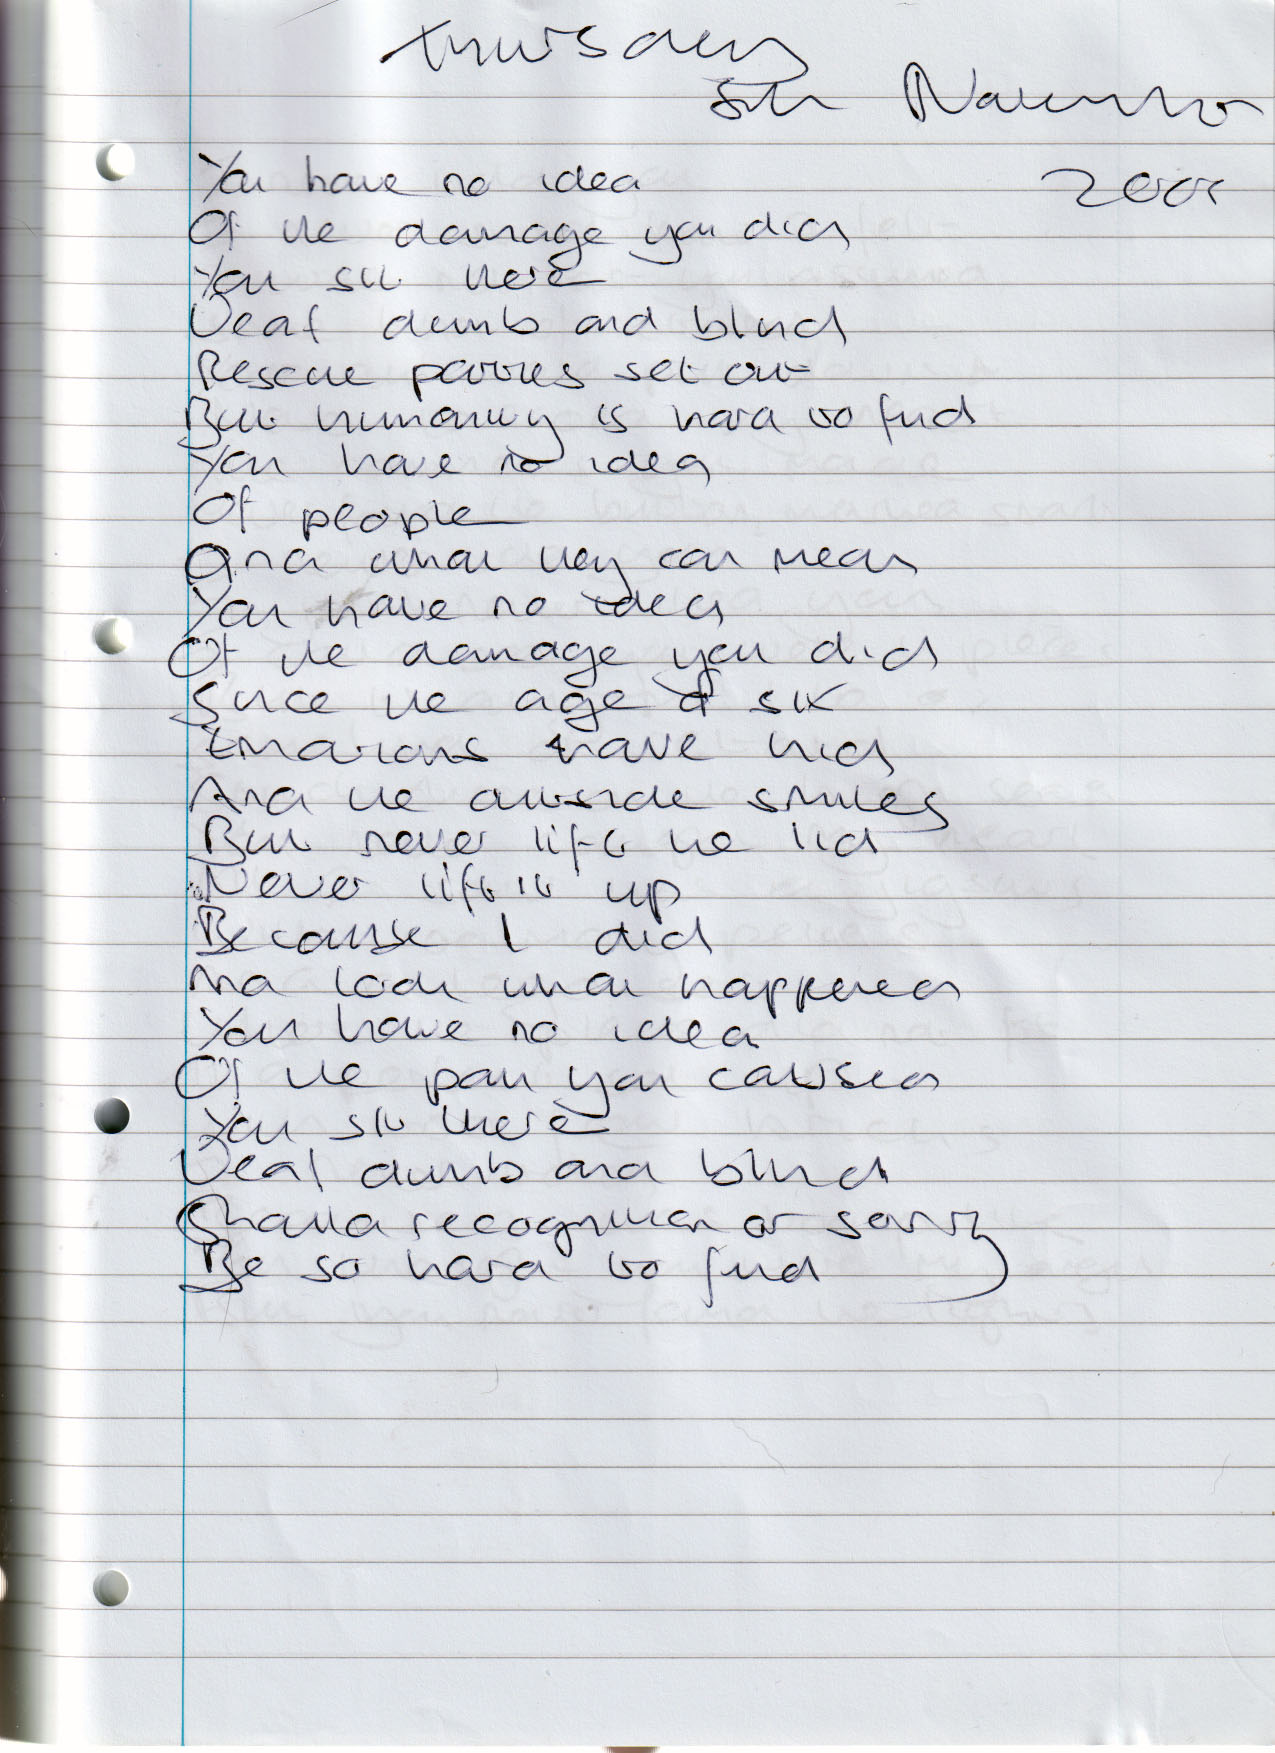 Thursday
5th November
You have no idea
Of the damage you did
You sit there
Deaf dumb and blind
Rescue parties set out
But humanity is hard to find
You have no idea
Of people
And what they can mean
You have no idea
Of the damage you did
Since the age of six
Emotions have hid
And the outside smiles
But never lift the lid
Never lift it up
Because I did
And look what happened
You have no idea
Of the pain you caused
You sit there
Deaf dumb and blind
Should recognition or sorry
Be so hard to find